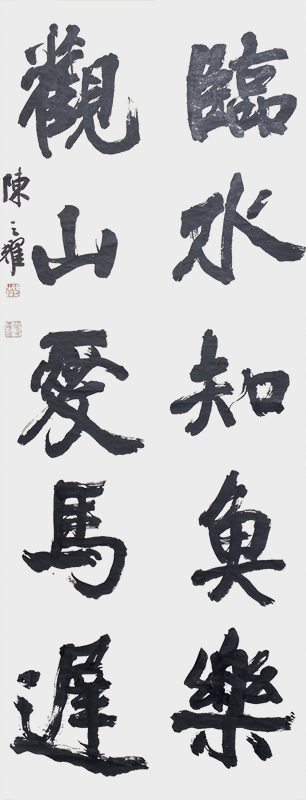 臨水知魚樂
觀山愛馬遲
陳之耀